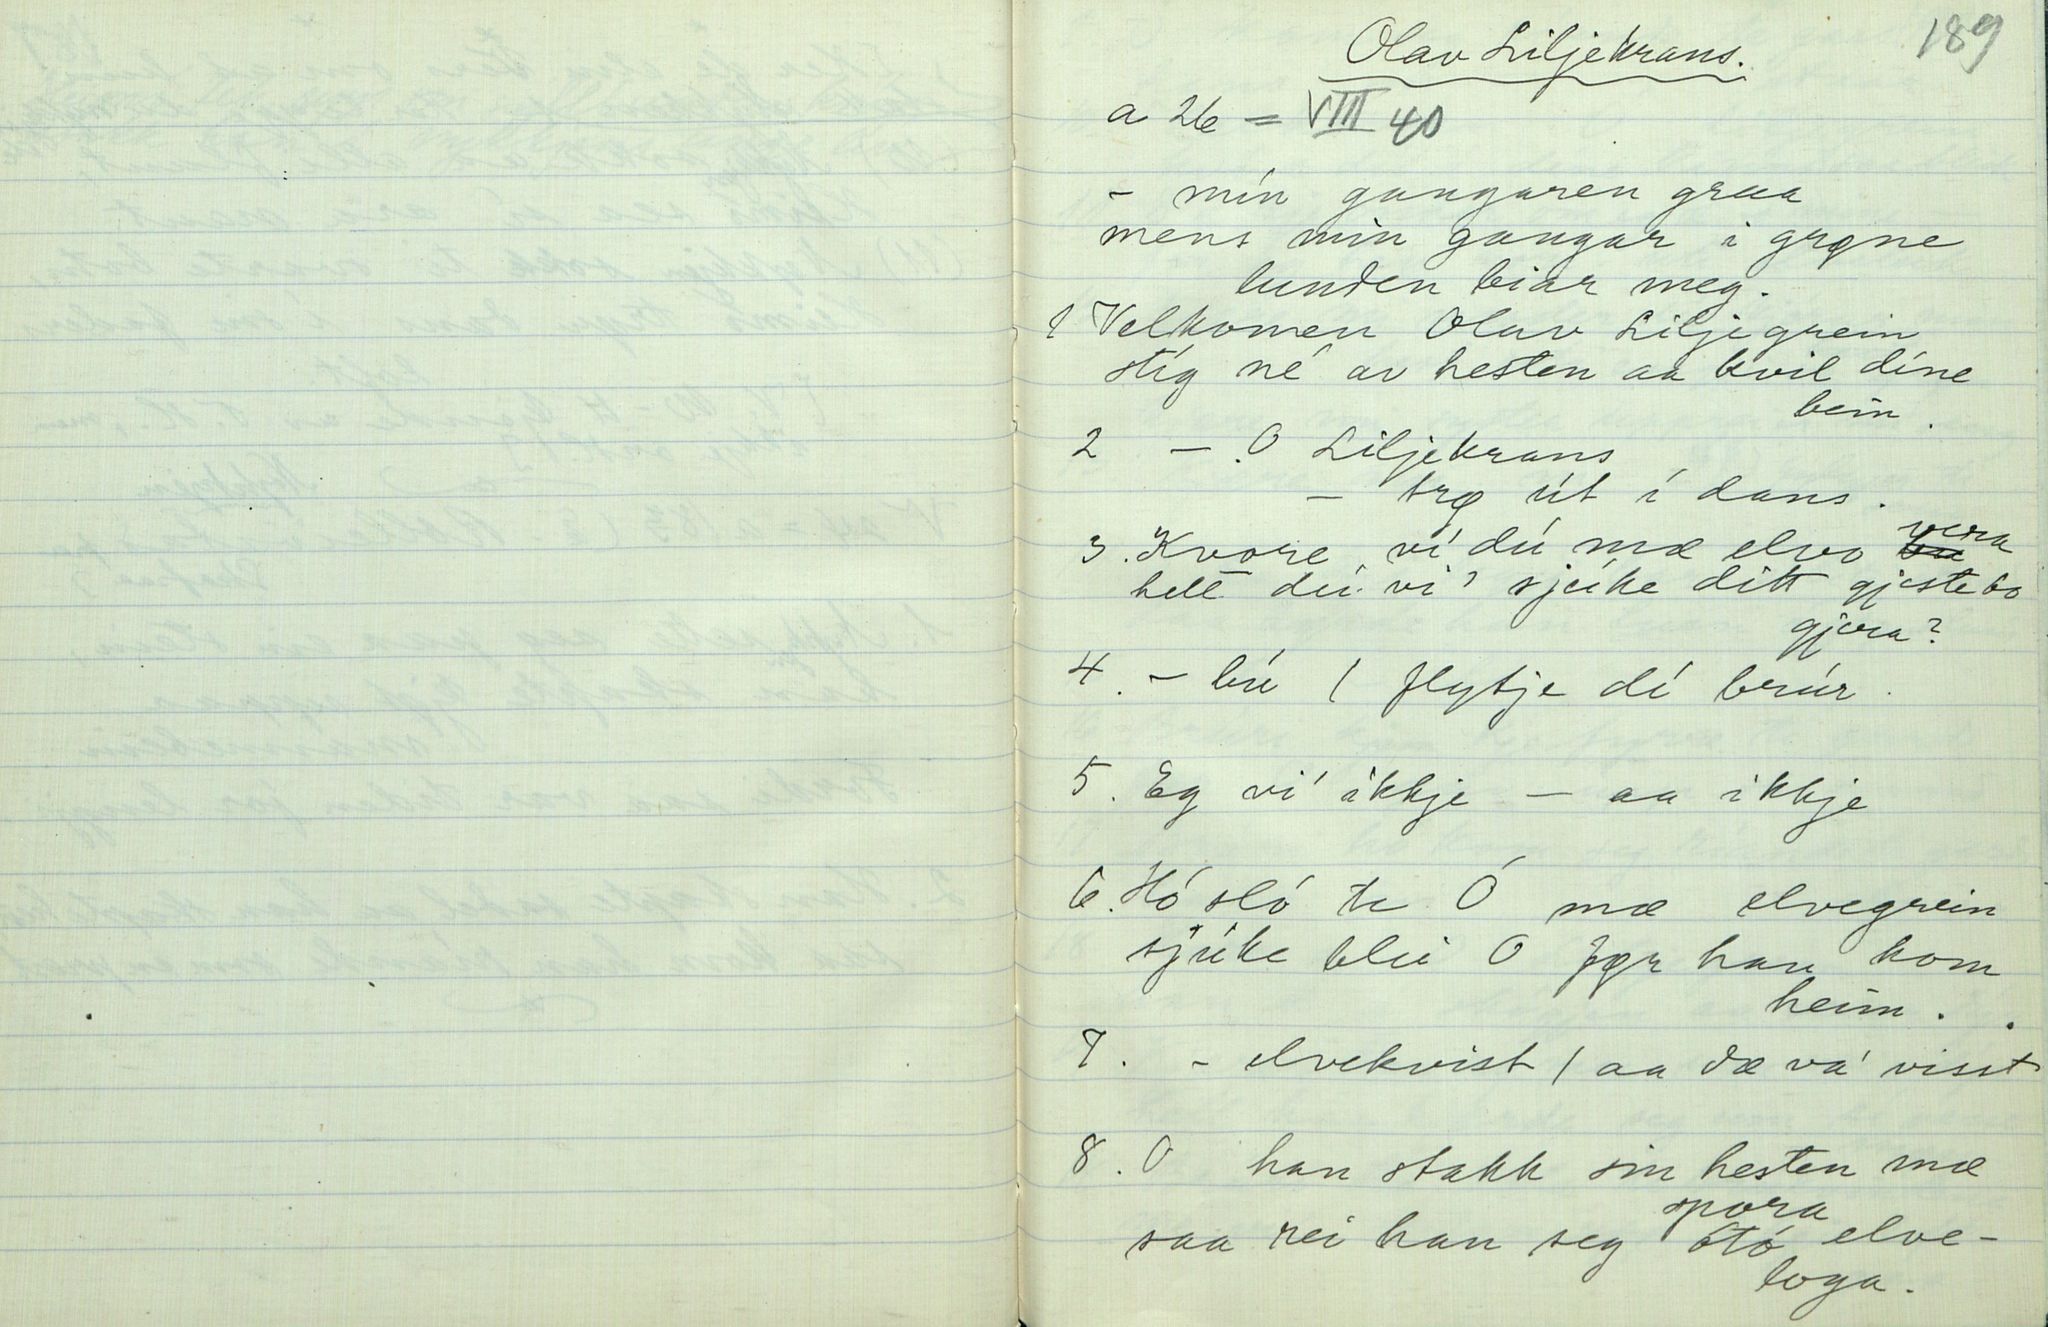 189
Olav Liljekrans.
a 26 = VIII 40
– mín gangaren graa
mens min gangar i grøne
lunden biar meg.
1 Velkomen Olav Liljegrein
stíg né av hesten aa kvil díne
bein
2 – O Liljekrans
– trø út í dans.
3. Kvore ví dú mæ elvo vera
hell dú vi' sjúke ditt gjestebo
gjera?
4. – bú / flytje dí brúr.
5. Eg vi' ikkje – aa ikkje
6. Hó sló te Ó mæ elvegrein
sjúke blei O før han kom
heim.
7. – elvekvist / aa dæ va' visst
8. O han stakk sin hesten mæ
spora
saa rei han seg ótó elve-
loga.